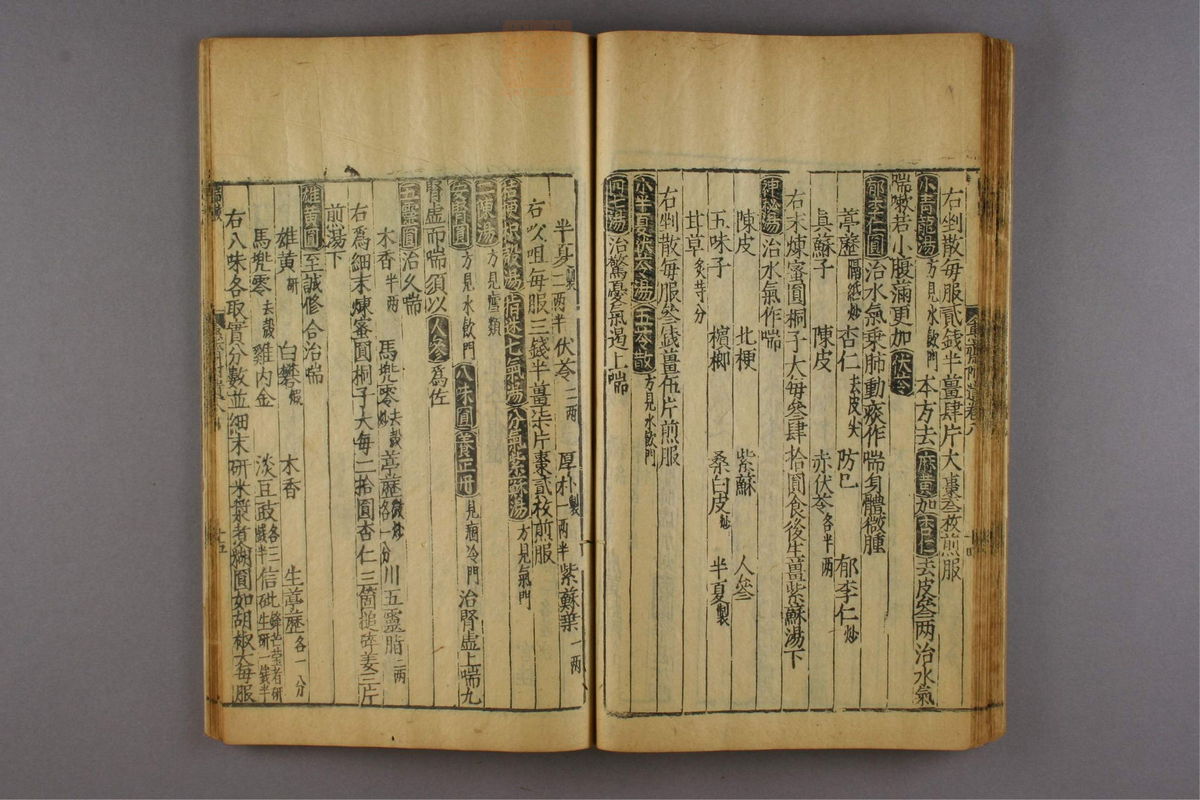 右剉散每服貳錢半薑肆片大棗叁枚煎服
小青龍湯方見水飮門本方去麻黃加杏仁去皮叁两治水氣
喘嗽若小腹滿更加伏苓
郁李仁圓治水氣乗肺動痰作喘身體微腫
葶藶隔紙炒 杏仁去皮尖 防巳 郁李仁炒
真蘇子 陳皮 赤伏苓各半两
右末煉蜜圓桐子大每叁肆拾圓食後生薑紫蘇湯下
神秘湯治水氣作喘
陳皮 北梗 紫蘇 人參
五味子 檳榔 桑白皮炒 半夏製
甘草炙等分
右剉散每服叁錢薑伍片煎服
小半夏伏苓湯五苓散方見水飮門
四七湯治驚憂氣遏上喘
十四
半夏製二两半 伏苓二两 厚朴製一两半 紫蘇葉一两
右㕮咀每服三錢半薑柒片棗貳枚煎服
桔梗枳殼湯指迷七氣湯分氣紫蘇湯方見氣門
二陳湯方見瘧類
安腎圓方見水飮門八味圓養正丹見痼冷門治腎虛上喘九
腎虛而喘須以人參爲佐
五靈圓治久喘
木香半两 馬兜零去殼炒 葶藶微炒各一分 川五靈脂二两
右爲細末煉蜜圓桐子大每二拾圓杏仁三箇搥碎姜三片
煎湯下
雄黃圓至誠修合治喘
雄黃研 白礬煆 木香 生葶藶各一八分
馬兜零去殼 雞内金 淡豆豉各三錢半 信砒鋒芒瑩者研生研一錢半
右八味各取實分數並細末研米䊢者糊圓如胡椒大每服
十五